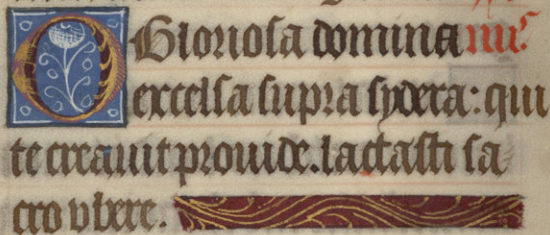 O Gloriosa domina
excelsa supra sydera: qui
te creauit prouide. lactasti sa
cro vbere.